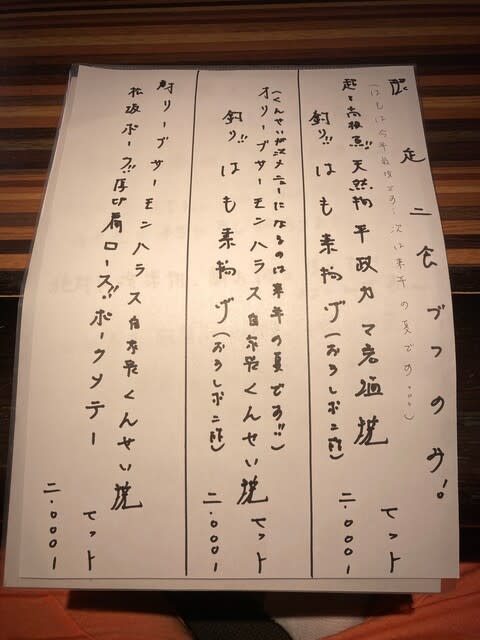 限定二食づつのみ!
(はもは今年最後です! 次は来年の夏です。。。)
超高級魚!! 天然物平政カマ岩塩焼
釣り!! はも素揚げ(おろしポン酢)
セット
二.〇〇〇ー
(くんせいが次メニューになるのは来年の夏です!!)
オリーブサーモンハラス自家製くんせい焼
釣り!! はも素揚げ(おろしポン酢)
セット
二.〇〇〇ー
オリーブサーモンハラス自家製くんせい焼
松坂ポーク!! 厚切肩ロース!! ポークソテー
セット
二.〇〇〇ー